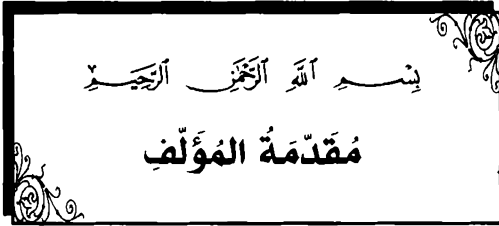 بِسْمِ ٱللَّهِ ٱلرَّحْمَٰنِ ٱلرَّحِيمِ
مُقَدِّمَةُ المُؤَلِّفِ